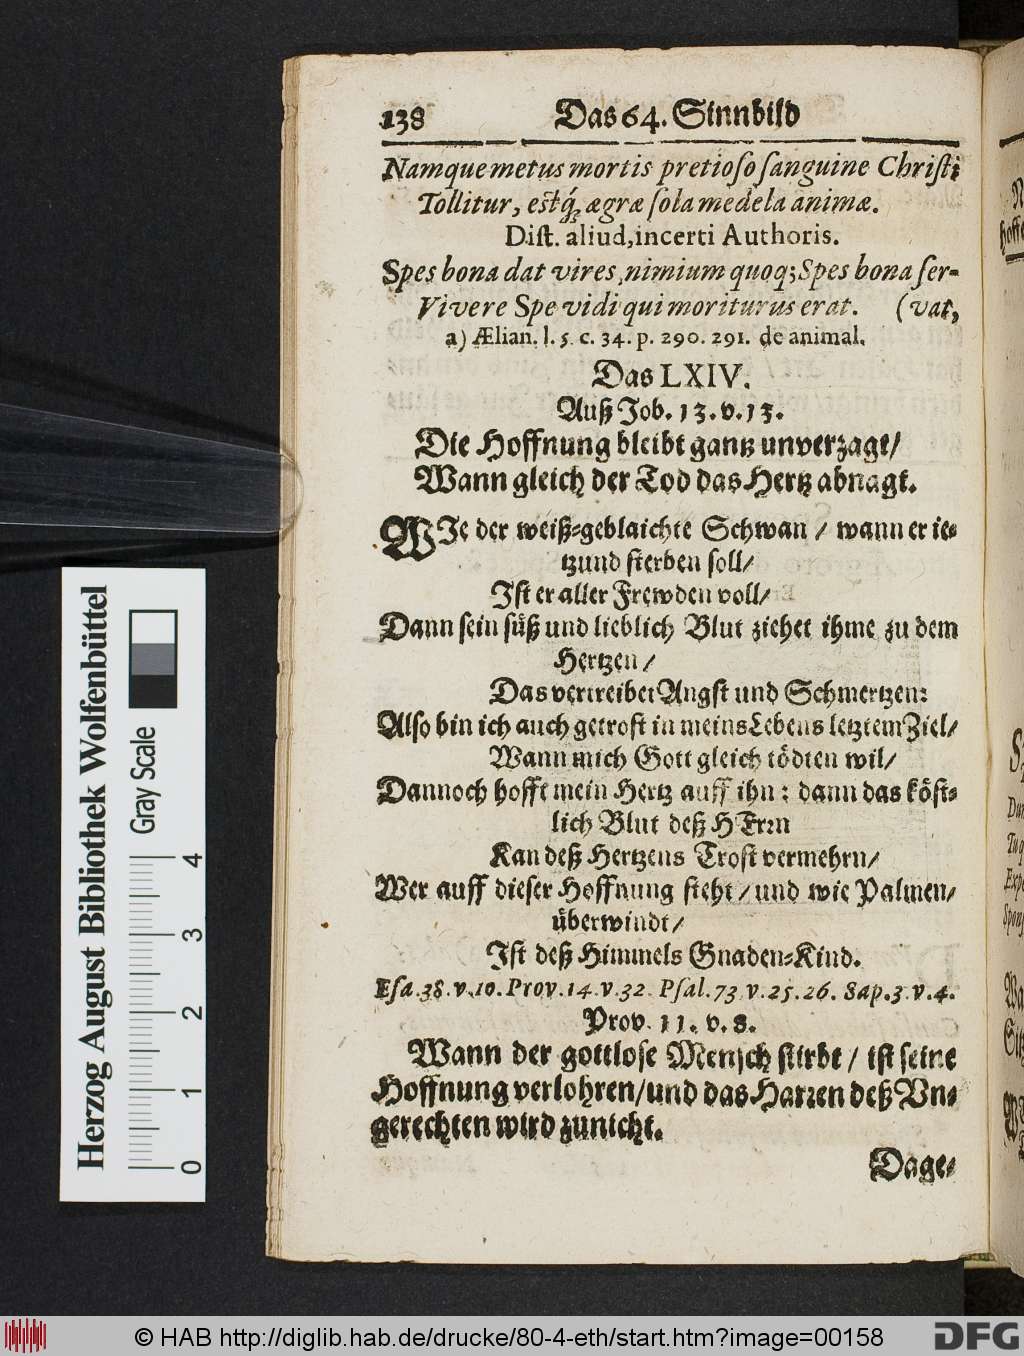 138 Das 64. Sinnbild
Namque metus mortis pretioso sanguine Christi
Tollitur, estq́; ægræ sola medela animæ.
Dist. aliud, incerti Authoris.
Spes bona dat vires, nimium quoq; Spes bona ser-
Vivere Spe vidi qui moriturus erat. (vat,
a) Ælian. l. 5. c. 34. p. 290. 291. de animal.
Das LXIV.
Auß Job. 13. v. 15.
Die Hoffnung bleibt gantz unverzagt/
Wann gleich der Tod das Hertz abnagt.
WJe der weiß-geblaichte Schwan / wann er ie-
tzund sterben soll/
Jst er aller Frewden voll/
Dann sein süß und lieblich Blut ziehet ihme zu dem
Hertzen /
Das vertreibet Angst und Schmertzen:
Also bin ich auch getrost in meins Lebens letztem Ziel/
Wann mich Gott gleich tödten wil/
Dannoch hofft mein Hertz auff ihn: dann das köst-
lich Blut deß HErrn
Kan deß Hertzens Trost vermehrn/
Wer auff dieser Hoffnung steht / und wie Palmen/
überwindt/
Jst deß Himmels Gnaden-Kind.
Esa. 38. v. 10. Prov. 14. v. 32. Psal. 73. v. 25. 26. Sap. 3. v. 4.
Prov. 11. v. 8.
Wann der gottlose Mensch stirbt / ist seine
Hoffnung verlohren/und das Harren deß Vn-
gerechten wird zunicht.
Dage-
Herzog August Bibliothek Wolfenbüttel
Gray Scale
0 1 2 3 4
© HAB http://diglib.hab.de/drucke/80-4-eth/start.htm?image=00158
DFG